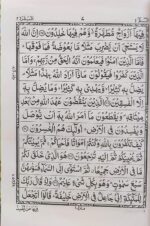 فِيهَا أَزْوَاجٌ مُّطَهَّرَةٌ وَّهُمْ فِيهَا خٰلِدُونَ إِنَّ اللّٰهَ
لَا يَسْتَحْيٖ أَنْ يَّضْرِبَ مَثَلًا مَّا بَعُوضَةً فَمَا فَوْقَهَا
فَأَمَّا الَّذِينَ اٰمَنُوا فَيَعْلَمُونَ أَنَّهُ الْحَقُّ مِنْ رَّبِّهِمْ وَ
أَمَّا الَّذِينَ كَفَرُوا فَيَقُولُونَ مَاذَا أَرَادَ اللّٰهُ بِهٰذَا مَثَلًا
يُضِلُّ بِهٖ كَثِيرًا وَّيَهْدِي بِهٖ كَثِيرًا وَمَا يُضِلُّ بِهٖ
إِلَّا الْفٰسِقِينَ الَّذِينَ يَنْقُضُونَ عَهْدَ اللّٰهِ مِنْ بَعْدِ
مِيثَاقِهٖ وَيَقْطَعُونَ مَا أَمَرَ اللّٰهُ بِهٖ أَنْ يُّوصَلَ وَ
يُفْسِدُونَ فِي الْأَرْضِ أُولٰئِكَ هُمُ الْخٰسِرُونَ كَيْفَ
تَكْفُرُونَ بِاللّٰهِ وَكُنْتُمْ أَمْوَاتًا فَأَحْيَاكُمْ ثُمَّ يُمِيتُكُمْ
ثُمَّ يُحْيِيكُمْ ثُمَّ إِلَيْهِ تُرْجَعُونَ هُوَ الَّذِي خَلَقَ لَكُمْ
مَّا فِي الْأَرْضِ جَمِيعًا ثُمَّ اسْتَوٰى إِلَى السَّمَاءِ فَسَوّٰهُنَّ
سَبْعَ سَمٰوٰتٍ وَهُوَ بِكُلِّ شَيْءٍ عَلِيمٌ وَإِذْ قَالَ رَبُّكَ
لِلْمَلٰئِكَةِ إِنِّي جَاعِلٌ فِي الْأَرْضِ خَلِيفَةً قَالُوا أَتَجْعَلُ